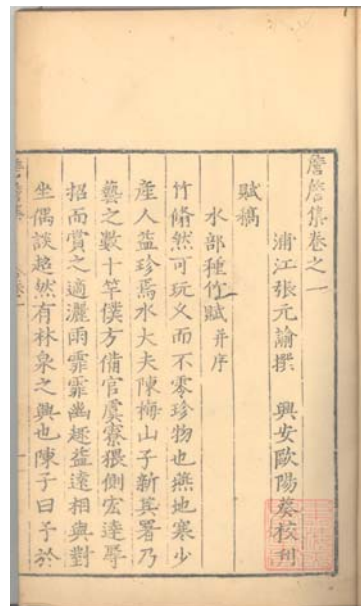 詹詹集卷之一
浦江張元諭撰 興安歐陽葵校刊
賦稿
水部種竹賦并序
竹翛然可玩义而不零珍物也燕地寒少
產人益珍焉水大夫陳梅山子新箕署乃
藝之數十竿僕方備官虞寮猥側宏達辱
招而賞之適灑雨霏霏幽趣益遠相與對
坐偶談超然有林泉之興也陳子曰予於